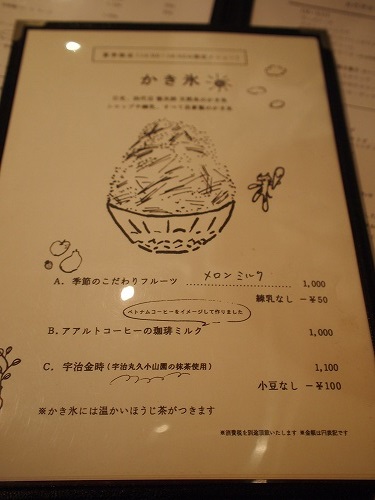 かき氷
A. 季節のこだわりフルーツ メロンミルク 1,000
練乳なし －¥50
ベトナムコーヒーをイメージして作りました
B. アアルトコーヒーの珈琲ミルク 1,000
C. 宇治金時(宇治丸久小山園の抹茶使用) 1,100
小豆なし －¥100
※かき氷には温かいほうじ茶がつきます
※消費税を別途頂戴いたします ※金額は円表記です